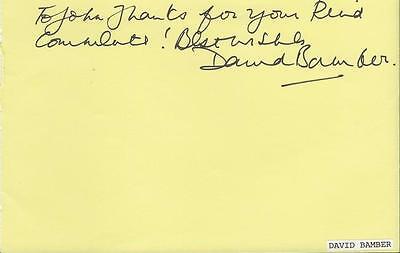 To John Thanks for your kind
Comments! Best wishes
David Bamber.
DAVID BAMBER